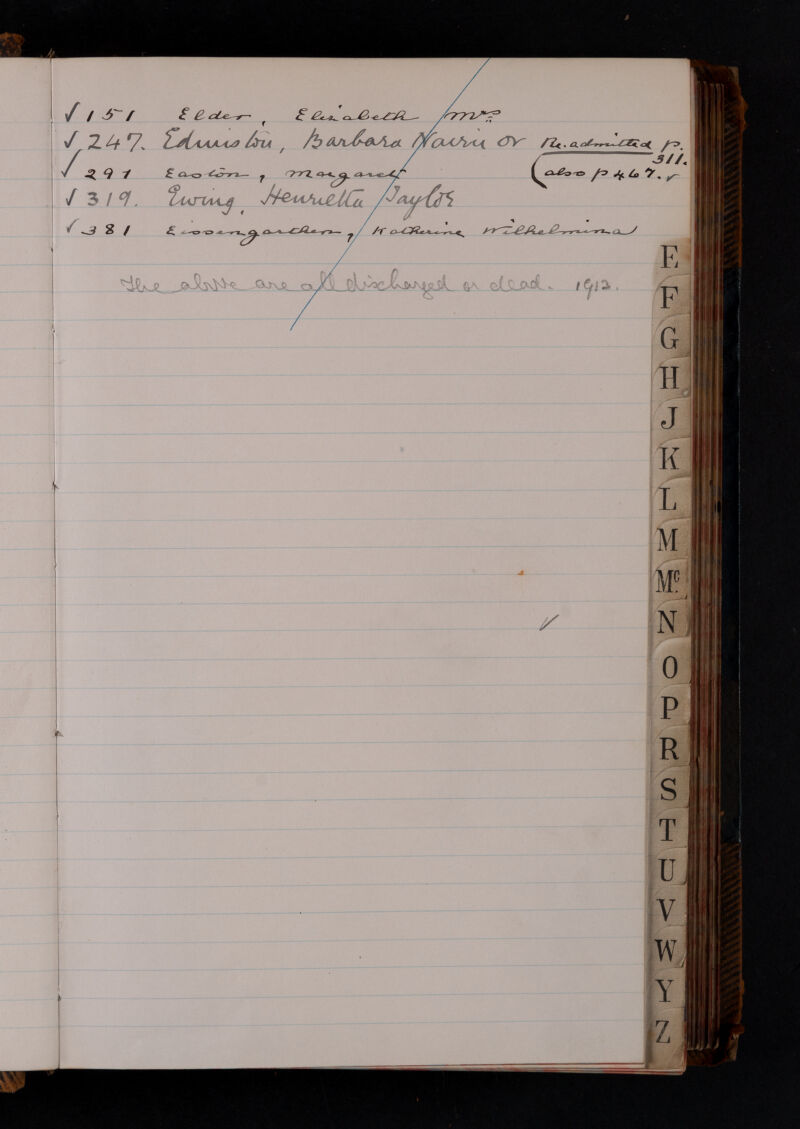 ✓ 151 Elder, Elizabeth Mrs
✓ 247. Edmiston, Barbara Nairn or Re.admitted p. 311.
✓ 297 Easton, Margaret (also p 467. ✓
✓ 319. Ewing, Henrietta Taylor
✓ 381 Eissengarthen, Katherine Wilhelmina
The above are all discharged or dead. 1912.
✓
E
F
G
H
J
K
L
M
Mc.
N
O
P
R
S
T
U
V
W
Y
Z